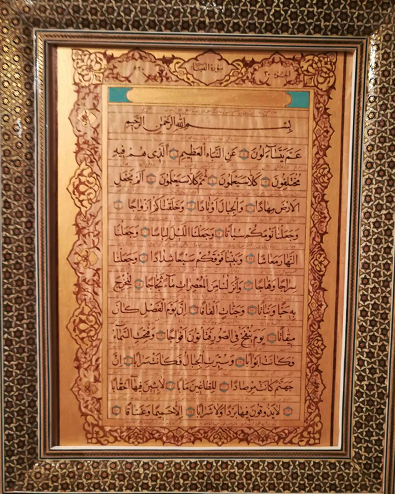 الجزء ٣٠
سورة النبأ
بسم الله الرحمن الرحيم
عَمَّ يَتَسَاءَلُونَ عَنِ النَّبَإِ الْعَظِيمِ الَّذِي هُمْ فِيهِ
مُخْتَلِفُونَ كَلَّا سَيَعْلَمُونَ ثُمَّ كَلَّا سَيَعْلَمُونَ أَلَمْ نَجْعَلِ
الْأَرْضَ مِهَادًا وَالْجِبَالَ أَوْتَادًا وَخَلَقْنَاكُمْ أَزْوَاجًا
وَجَعَلْنَا نَوْمَكُمْ سُبَاتًا وَجَعَلْنَا اللَّيْلَ لِبَاسًا وَجَعَلْنَا
النَّهَارَ مَعَاشًا وَبَنَيْنَا فَوْقَكُمْ سَبْعًا شِدَادًا وَجَعَلْنَا
سِرَاجًا وَهَّاجًا وَأَنْزَلْنَا مِنَ الْمُعْصِرَاتِ مَاءً ثَجَّاجًا لِنُخْرِجَ
بِهِ حَبًّا وَنَبَاتًا وَجَنَّاتٍ أَلْفَافًا إِنَّ يَوْمَ الْفَصْلِ كَانَ
مِيقَاتًا يَوْمَ يُنْفَخُ فِي الصُّورِ فَتَأْتُونَ أَفْوَاجًا وَفُتِحَتِ السَّمَاءُ
فَكَانَتْ أَبْوَابًا وَسُيِّرَتِ الْجِبَالُ فَكَانَتْ سَرَابًا إِنَّ
جَهَنَّمَ كَانَتْ مِرْصَادًا لِلطَّاغِينَ مَآبًا لَابِثِينَ فِيهَا أَحْقَابًا
لَا يَذُوقُونَ فِيهَا بَرْدًا وَلَا شَرَابًا إِلَّا حَمِيمًا وَغَسَّاقًا